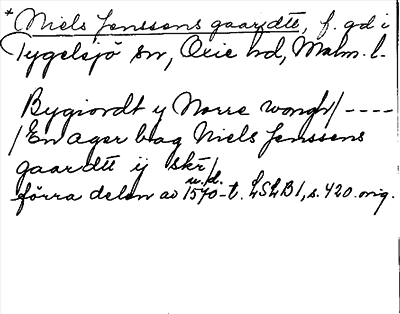 * Niels Jenssens gaardtt, f. gd i
Tygelsjö sn, Oxie hd, Malm. l.
Bygiordt y Norre wongh/ ----
/En ager bag Niels Jenssens
gaardtt ij skr/
u./d.
förra delen av 1570-t. LSLB1, s. 420. orig.